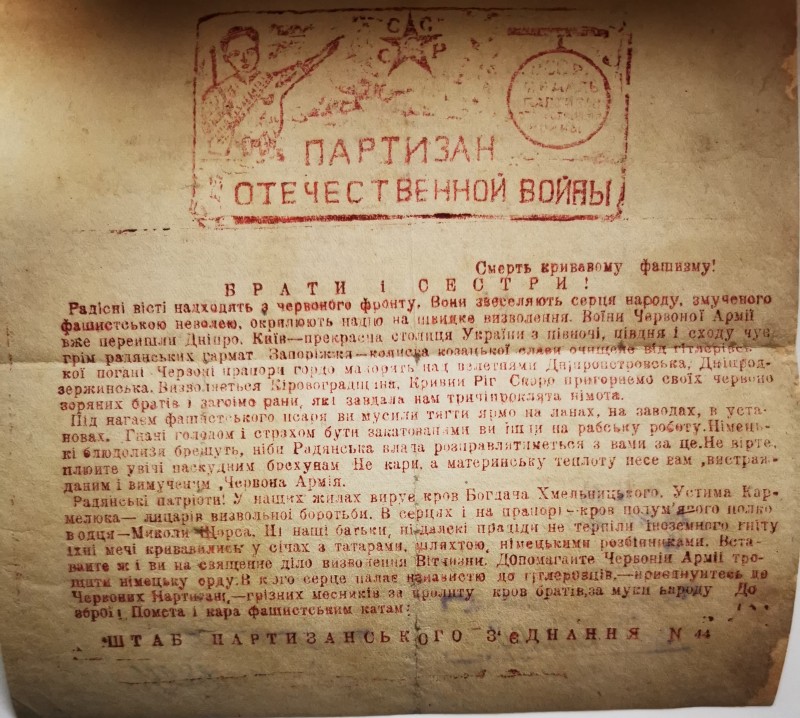 СС
СР
СССР
МЕДАЛЬ
ПАРТИЗАН
ОТЕЧЕСТВЕННОЙ ВОЙНЫ
Смерть кривавому фашизму!
БРАТИ І СЕСТРИ!
Радісні вісті надходять з червоного фронту. Вони звеселяють серця народу, змученого
фашистською неволею, окрилюють надію на швидке визволення. Воїни Червоної Армії
вже перейшли Дніпро. Київ—прекрасна столиця України з півночі, півдня і сходу чує
грім радянських гармат. Запоріжжя—колиска козацької слави очищене від гітлерівсь
кої погані Червоні прапори гордо майорять над велетнями Дніпропетровська, Дніпрод-
зержинська. Визволяється Кіровоградщина, Кривий Ріг Скоро пригорнемо своїх червоно
зоряних братів і загоїмо рани, які завдала нам тричіпроклята німота.
Під нагаєм фашистського псаря ви мусили тягти ярмо на ланах, на заводах, в уста-
новах. Гнані голодом і страхом бути закатованими ви йшли на рабську роботу.Німець-
кі блюдолизи брешуть, ніби Радянська влада розправлятиметься з вами за це.Не вірте,
плюйте увічі паскудним брехунам Не кари, а материнську теплоту несе вам ,вистраж-
даним і вимученим ,Червона Армія.
Радянські патріоти! У наших жилах вирує кров Богдана Хмельницького, Устима Кар-
мелюка— лицарів визвольної боротьби. В серцях і на прапорі—кров полум'яного полко
водця—Миколи Щорса. Ні наші батьки, ні далекі прадіди не терпіли іноземного гніту
їхні мечі кривавились у січах з татарами, шляхтою, німецькими розбійниками. Вста-
вайте ж і ви на священне діло визволення Вітчизни. Допомагайте Червоній Армії тро-
щити німецьку орду.В кого серце палає ненавистю до гітлеровців,—приєднуйтесь до
Червоних Партизан,—грізних месників за пролиту кров братів,за муки народу До
зброї! Помста і кара фашистським катам!
ШТАБ ПАРТИЗАНСЬКОГО З'ЄДНАННЯ N 44